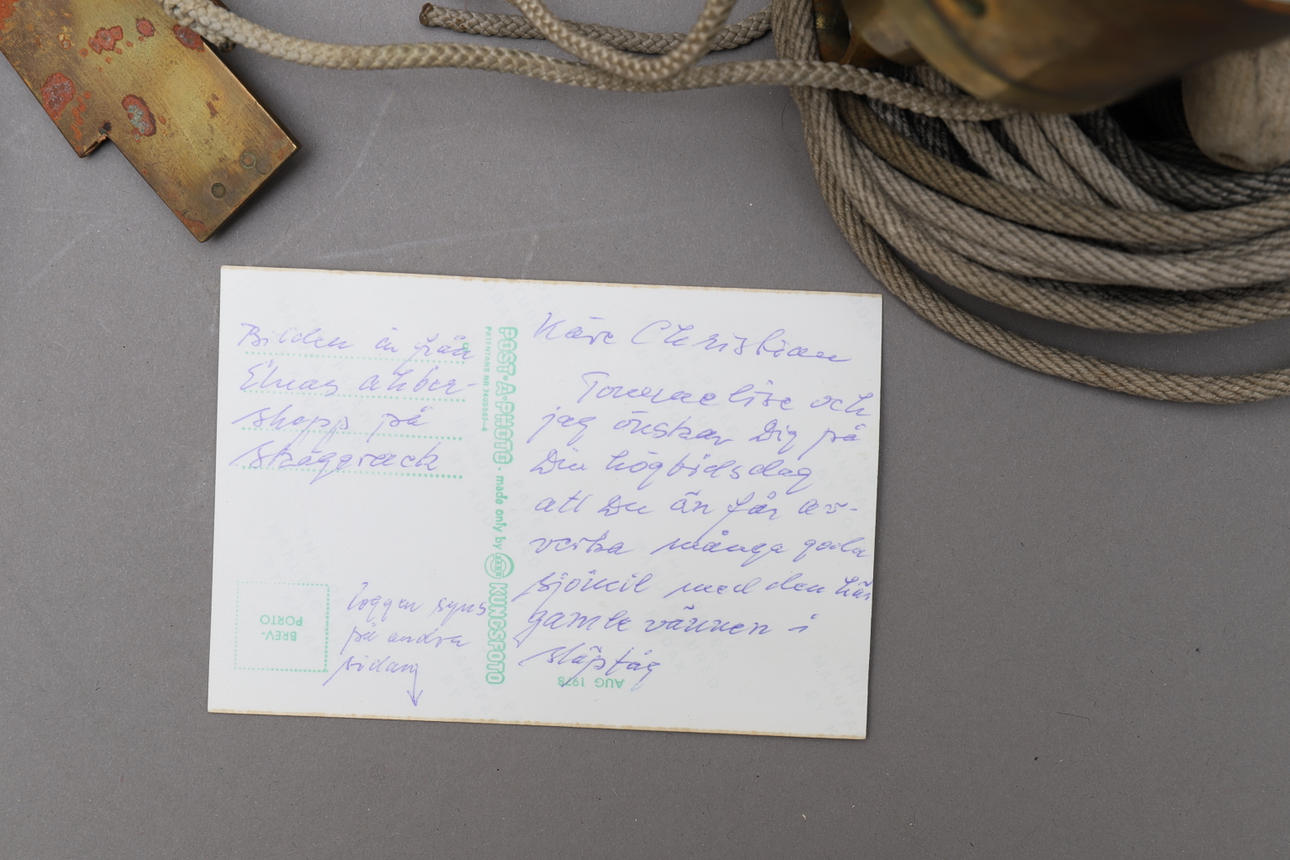 Bilden är från
Elnas akter-
stopp på
Skaggerack
loggen syns
på andra
sidan
BREV-
PORTO
POST·A·PHOTO· made only by KUNGSFOTO
Käre Christian
och
jag önskar Dig på
Din högtidsdag
att Du än får av-
verka många goda
sjömil med den här
gamle vännen i
släptåg
AUG 1978